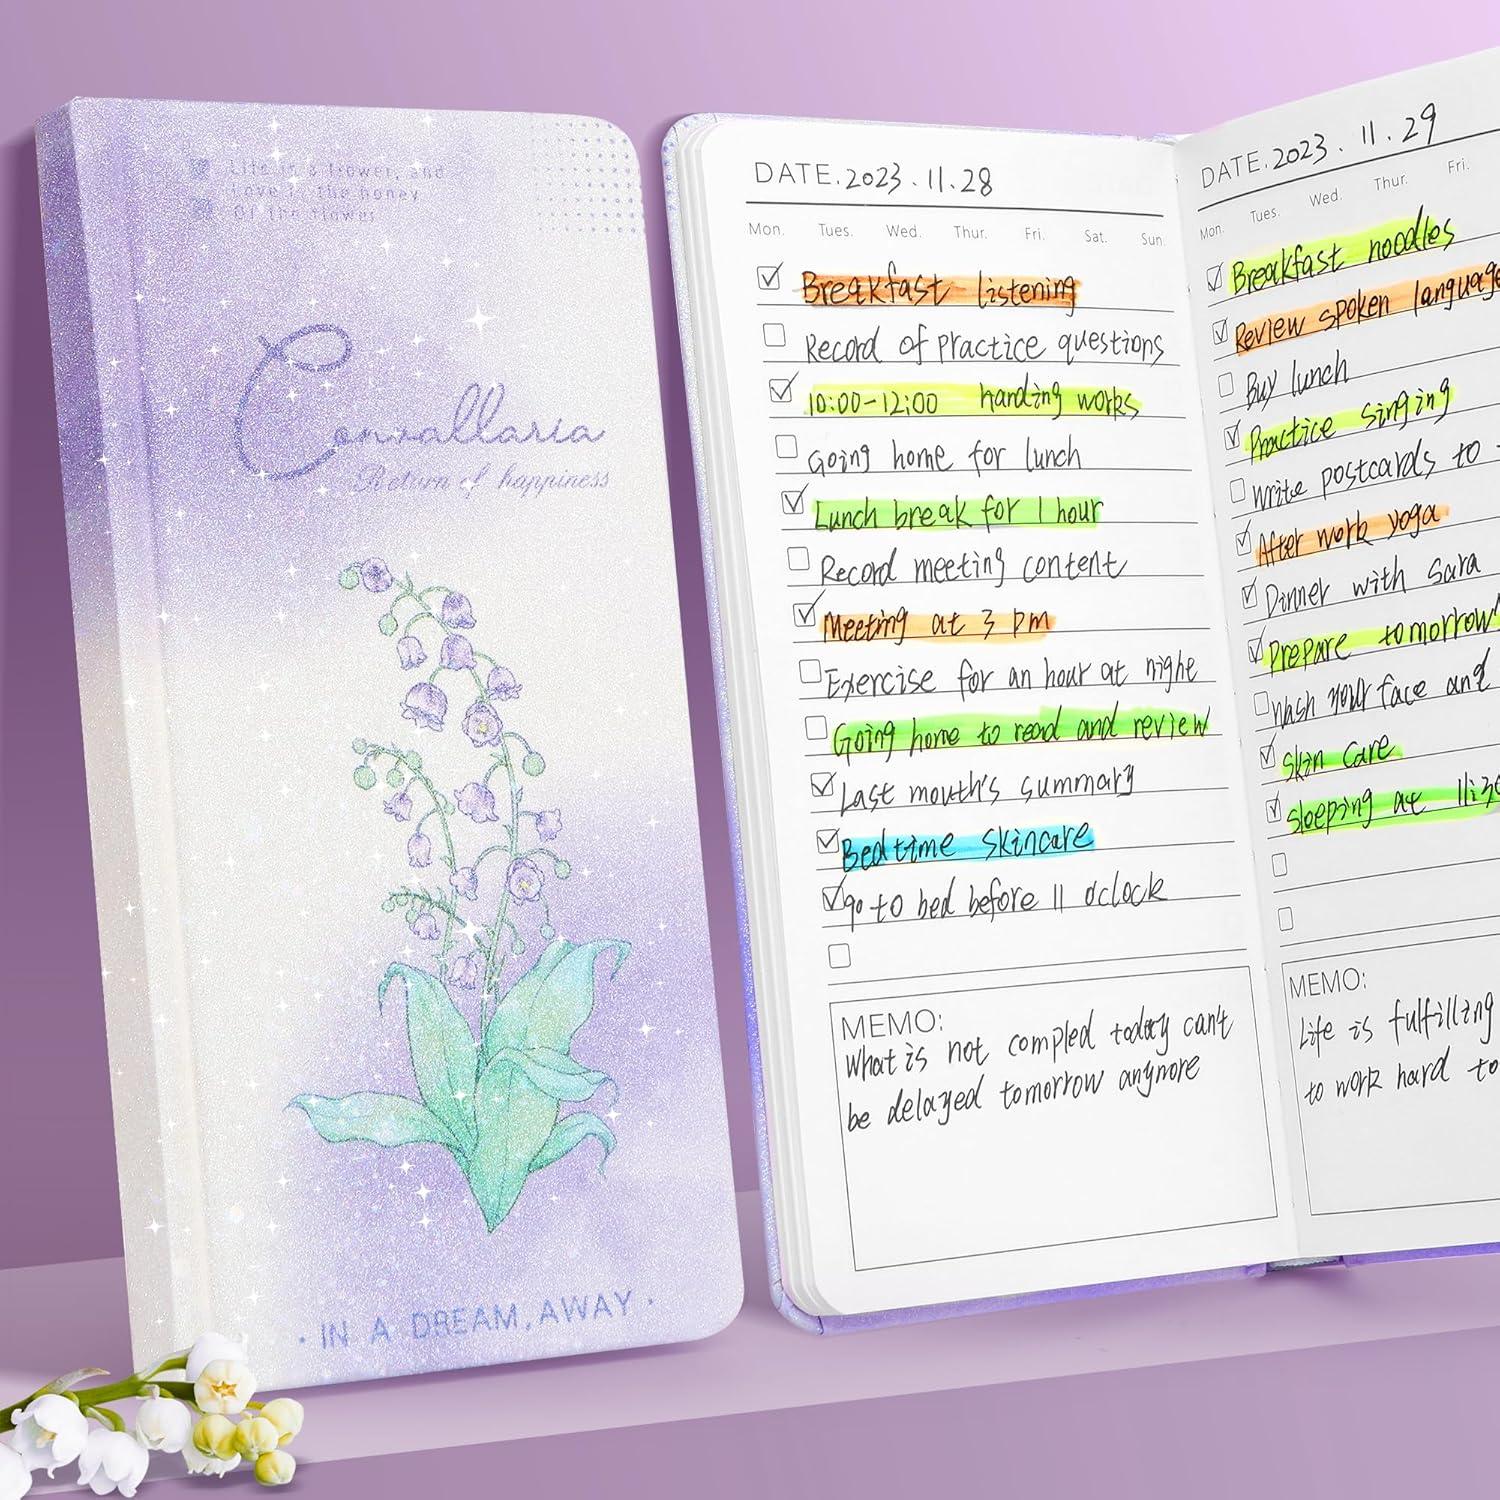 Life is a flower, and
Love is the honey
Of the flower
Convallaria
Return of happiness
· IN A DREAM, AWAY ·
DATE. 2023.11.28
Mon. Tues. Wed. Thur. Fri. Sat. Sun.
Breakfast listening
Record of practice questions
10:00-12:00 handing works
Going home for lunch
Lunch break for 1 hour
Record meeting content
Meeting at 3 pm
Exercise for an hour at nighe
Going home to read and review
Last mouth's summary
Bedtime skincare
go to bed before 11 o'clock
MEMO:
What is not compled today can't
be delayed tomorrow anymore
DATE. 2023.11.29
Mon. Tues. Wed. Thur. Fri.
Breakfast noodles
Review spoken language
Buy lunch
Practice singing
Write postcards to
After work yoga
Dinner with Sara
Prepare tomorrow'
Wash your face and
Skin care
Sleeping at 11:30
MEMO:
Life is fulfilling
to work hard to